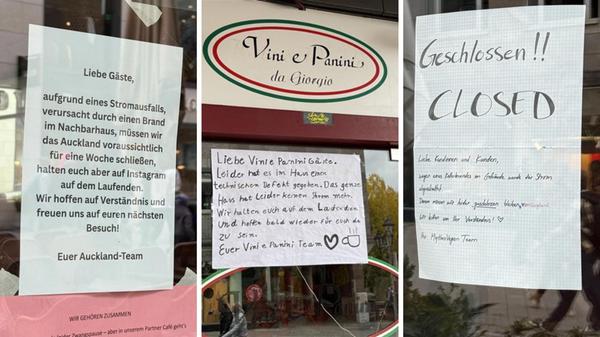 Liebe Gäste,
aufgrund eines Stromausfalls,
verursacht durch einen Brand
im Nachbarhaus, müssen wir
das Auckland voraussichtlich
für eine Woche schließen,
halten euch aber auf Instagram
auf dem Laufenden.
Wir hoffen auf Verständnis und
freuen uns auf euren nächsten
Besuch!
Euer Auckland-Team
WIR GEHÖREN ZUSAMMEN
Zwangspause – aber in unserem Partner Café geht's
Vini e Panini
da Giorgio
Liebe Vini e Panini Gäste.
Leider hat es im Haus einen
technischen Defekt gegeben. Das ganze
Haus hat Leider keinen Strom mehr.
Wir halten euch auf dem Laufenden
und hoffen bald wieder für euch da
zu sein.
Euer Vini e Panini Team
Geschlossen!!
CLOSED
Liebe Kundinnen und Kunden,
wegen eines im Gebäude wurde der Strom
abgestellt.
Daher müssen wir leider geschlossen bleiben
Wir bitten um Ihr Verständnis!
Ihr Team